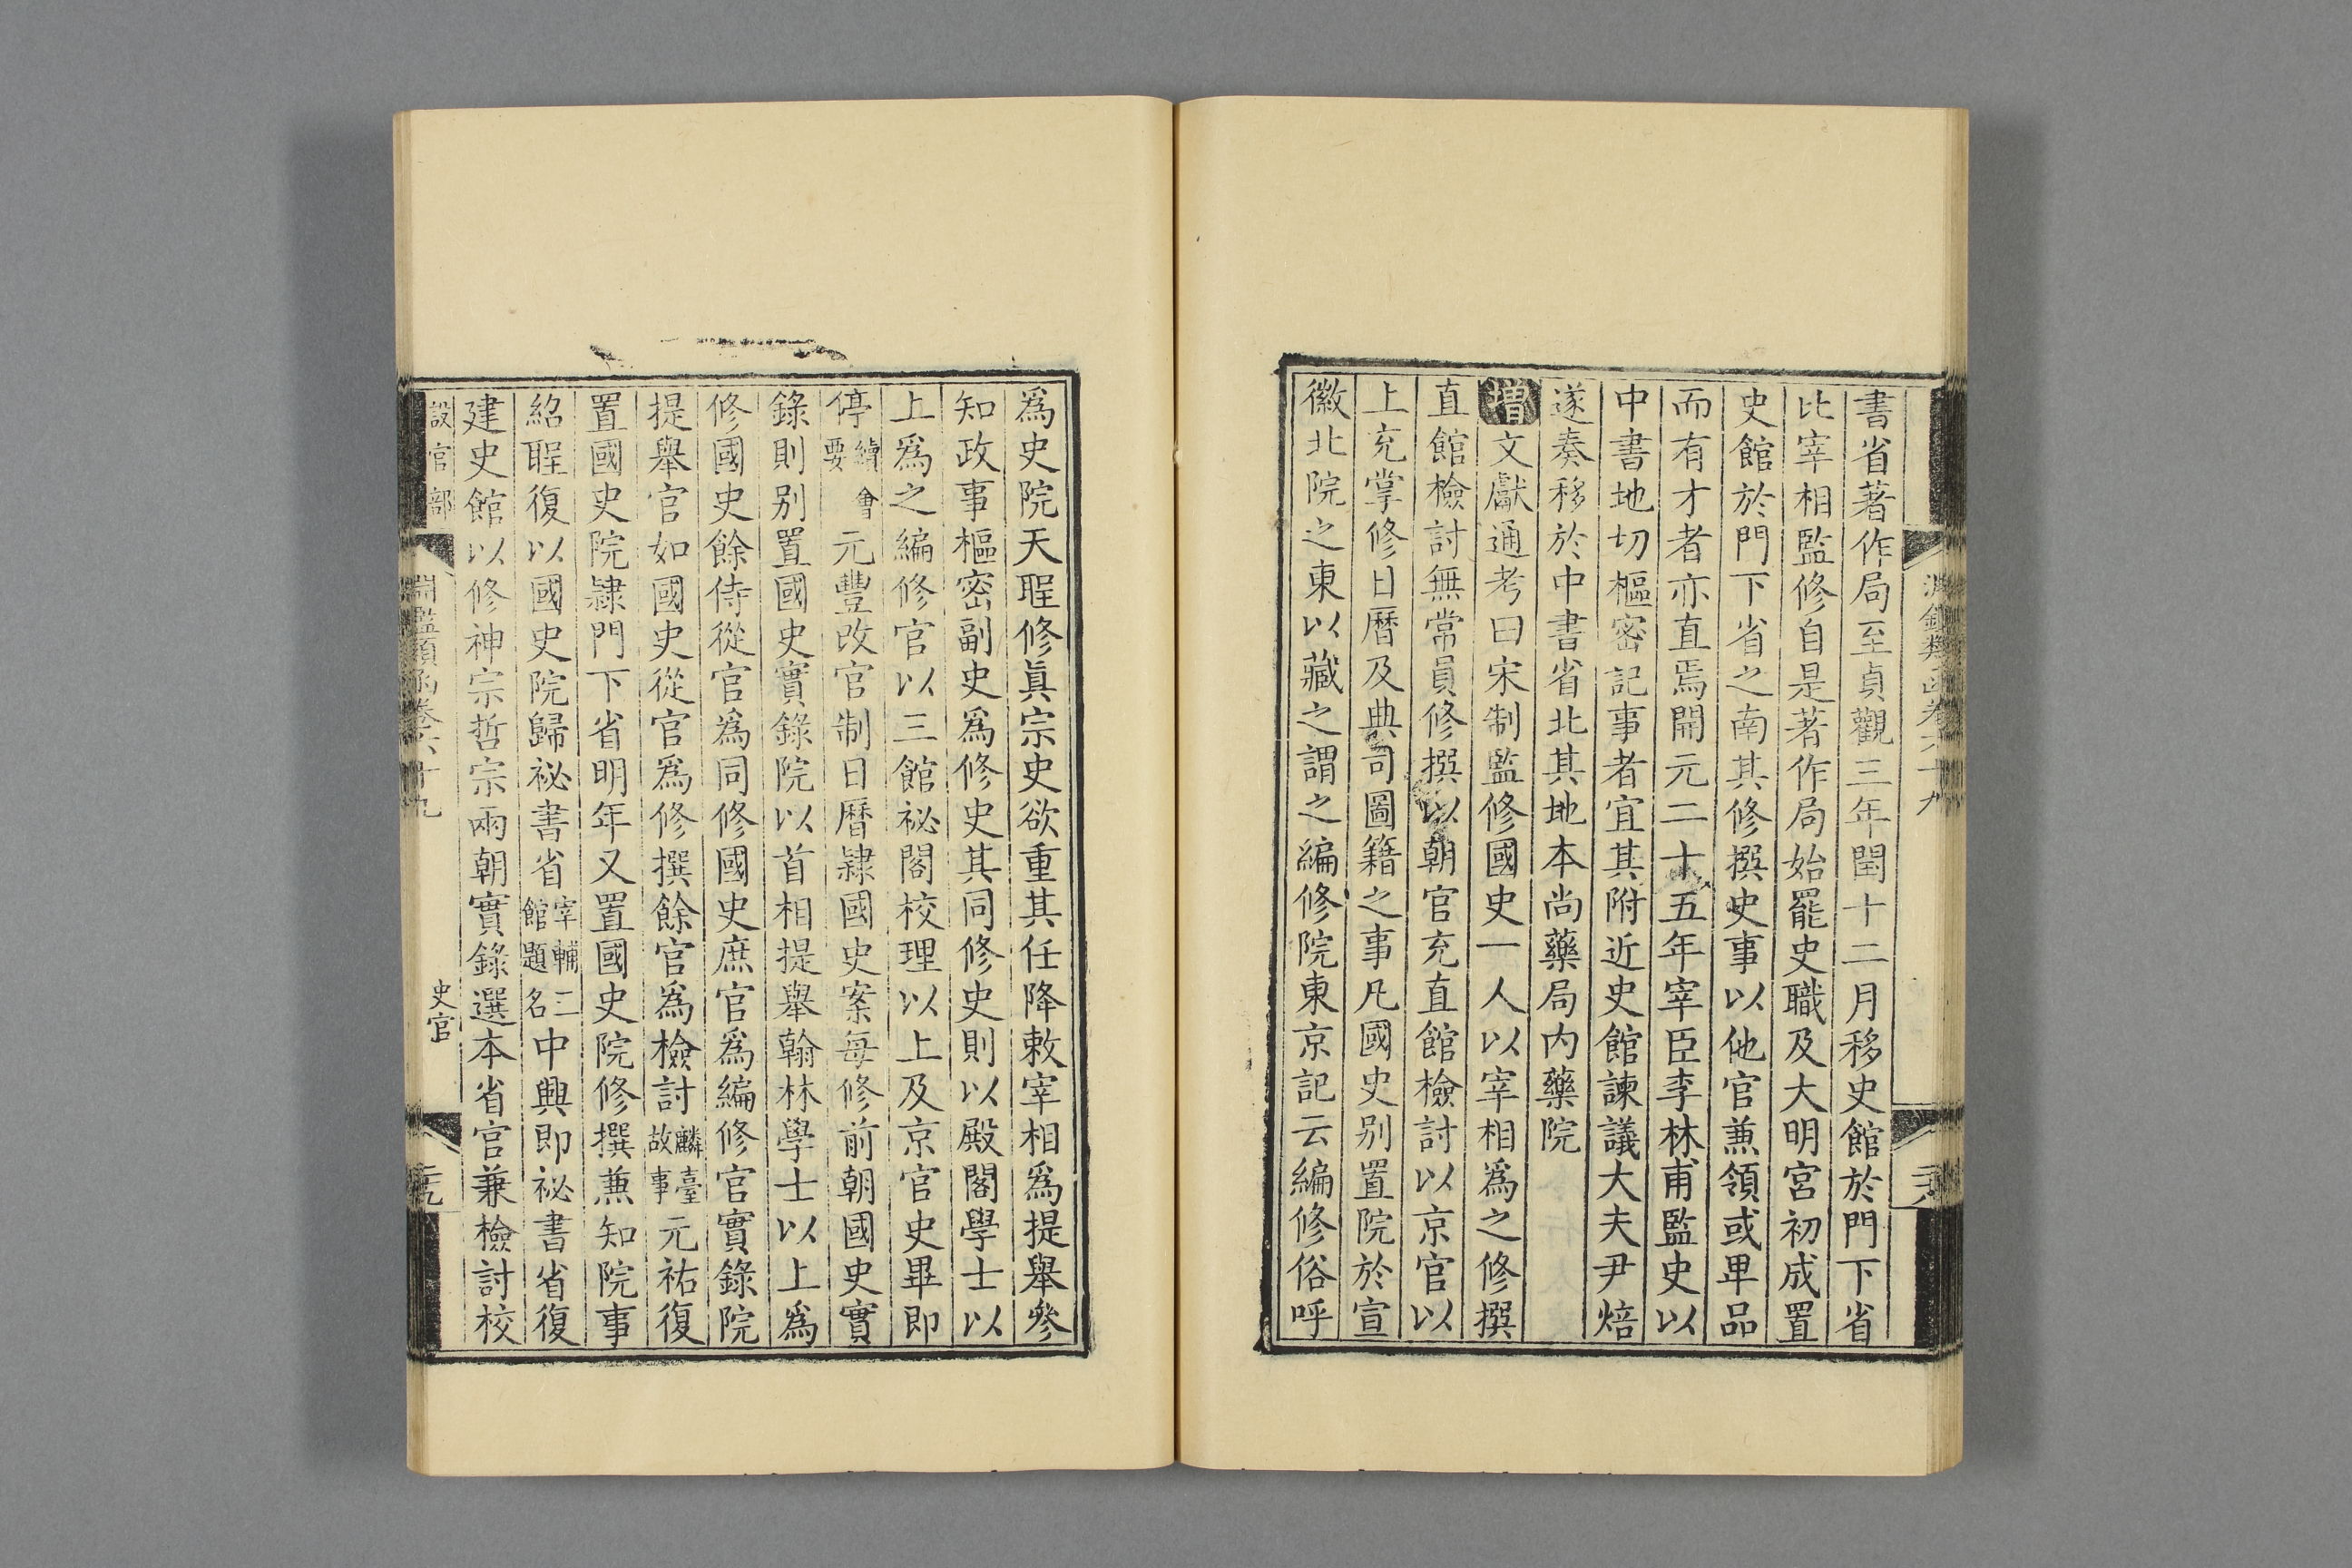 書省著作局至貞觀三年閏十二月移史館於門下省
比宰相監修自是著作局始罷史職及大明宮初成置
史館於門下省之南其修撰史事以他官兼領或卑品
而有才者亦直焉開元二十五年宰臣李林甫監史以
中書地切樞密記事者宜其附近史館諫議大夫尹愔
遂奏移於中書省北其地本尚藥局內藥院
增文獻通考曰宋制監修國史一人以宰相爲之修撰
直館檢討無常員修撰以朝官充直館檢討以京官以
上充掌修日曆及典司圖籍之事凡國史別置院於宣
徽北院之東以藏之謂之編修院東京記云編修俗呼
爲史院天聖修眞宗史欲重其任降敕宰相爲提舉參
知政事樞密副史爲修史其同修史則以殿閣學士以
上爲之編修官以三館祕閣校理以上及京官史畢即
停續會要元豐改官制日曆隷國史案每修前朝國史實
錄則別置國史實錄院以首相提舉翰林學士以上爲
修國史餘侍從官爲同修國史庶官爲編修官實錄院
提舉官如國史從官爲修撰餘官爲檢討麟臺故事元祐復
置國史院隷門下省明年又置國史院修撰兼知院事
紹聖復以國史院歸祕書省宰輔三館題名中興即祕書省復
建史館以修神宗哲宗兩朝實錄選本省官兼檢討校
設官部 淵鑑類函卷六十九 史官 二十九